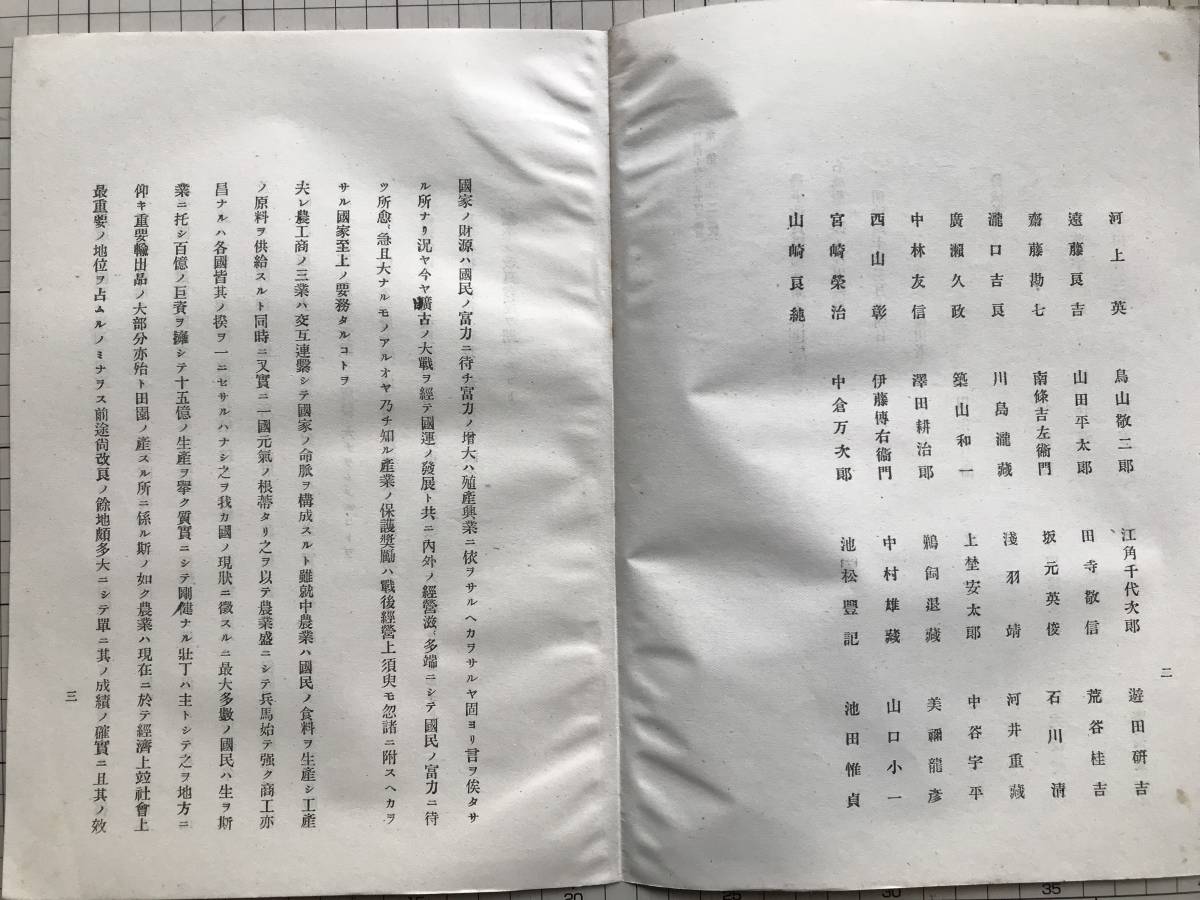 二
河上英 鳥山敬二郎 江角千代次郎 遊田研吉
遠藤良吉 山田平太郎 田寺敬信 荒谷桂吉
齋藤勘七 南條吉左衞門 坂元英俊 石川淸
瀧口吉良 川島瀧藏 淺羽靖 河井重藏
廣瀨久政 築山和一 上埜安太郎 中谷宇平
中林友信 澤田耕治郎 鵜飼退藏 美禰龍彥
西山彰 伊藤博右衞門 中村雄藏 山口小一
宮崎榮治 中倉万次郎 池松豐記 池田惟貞
山崎良純
國家ノ財源ハ國民ノ富力ニ待チ富力ノ增大ハ殖產興業ニ依ヲサルヘカヲサルヤ固ヨリ言ヲ俟タサ
ル所ナリ況ヤ今ヤ曠古ノ大戰ヲ經テ國運ノ發展ト共ニ內外ノ經營滋〻多端ニシテ國民ノ富力ニ待
ツ所愈〻急且大ナルモノアルオヤ乃チ知ル產業ノ保護奬勵ハ戰後經營上須臾モ忽諸ニ附スヘカヲ
サル國家至上ノ要務タルコトヲ
夫レ農工商ノ三業ハ交互連繫シテ國家ノ命脈ヲ構成スルト雖就中農業ハ國民ノ食料ヲ生產シ工產
ノ原料ヲ供給スルト同時ニ又實ニ一國元氣ノ根蔕タリ之ヲ以テ農業盛ニシテ兵馬始テ强ク商工亦
昌ナルハ各國皆其ノ揆ヲ一ニセサルハナシ之ヲ我カ國ノ現狀ニ徵スルニ最大多數ノ國民ハ生ヲ斯
業ニ托シ百億ノ巨資ヲ擁シテ十五億ノ生產ヲ擧ク質實ニシテ剛健ナル壯丁ハ主トシテ之ヲ地方ニ
仰キ重要輸出品ノ大部分亦殆ト田園ノ產スル所ニ係ル斯ノ如ク農業ハ現在ニ於テ經濟上竝社會上
最重要ノ地位ヲ占ムルノミナヲス前途尙改良ノ餘地頗多大ニシテ單ニ其ノ成績ノ確實ニ且其ノ效
三